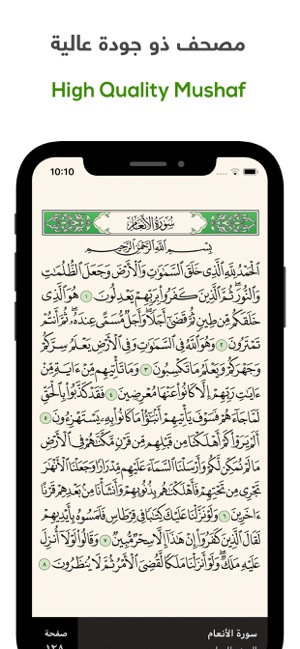 مصحف ذو جودة عالية
High Quality Mushaf
10:10
سُورَةُ الأَنْعَامِ
بِسْمِ اللَّهِ الرَّحْمَٰنِ الرَّحِيمِ
الْحَمْدُ لِلَّهِ الَّذِي خَلَقَ السَّمَٰوَٰتِ وَالْأَرْضَ وَجَعَلَ الظُّلُمَٰتِ
وَالنُّورَ ثُمَّ الَّذِينَ كَفَرُوا بِرَبِّهِمْ يَعْدِلُونَ ١ هُوَ الَّذِي
خَلَقَكُم مِّن طِينٍ ثُمَّ قَضَىٰ أَجَلًا وَأَجَلٌ مُّسَمًّى عِندَهُ ثُمَّ أَنتُمْ
تَمْتَرُونَ ٢ وَهُوَ اللَّهُ فِي السَّمَٰوَٰتِ وَفِي الْأَرْضِ يَعْلَمُ سِرَّكُمْ
وَجَهْرَكُمْ وَيَعْلَمُ مَا تَكْسِبُونَ ٣ وَمَا تَأْتِيهِم مِّنْ ءَايَةٍ مِّنْ
ءَايَٰتِ رَبِّهِمْ إِلَّا كَانُوا عَنْهَا مُعْرِضِينَ ٤ فَقَدْ كَذَّبُوا بِالْحَقِّ
لَمَّا جَاءَهُمْ فَسَوْفَ يَأْتِيهِمْ أَنبَٰٓؤُا مَا كَانُوا بِهِ يَسْتَهْزِءُونَ ٥
أَلَمْ يَرَوْا كَمْ أَهْلَكْنَا مِن قَبْلِهِم مِّن قَرْنٍ مَّكَّنَّٰهُمْ فِي الْأَرْضِ
مَا لَمْ نُمَكِّن لَّكُمْ وَأَرْسَلْنَا السَّمَاءَ عَلَيْهِم مِّدْرَارًا وَجَعَلْنَا الْأَنْهَٰرَ
تَجْرِي مِن تَحْتِهِمْ فَأَهْلَكْنَٰهُم بِذُنُوبِهِمْ وَأَنشَأْنَا مِن بَعْدِهِمْ قَرْنًا
ءَاخَرِينَ ٦ وَلَوْ نَزَّلْنَا عَلَيْكَ كِتَٰبًا فِي قِرْطَاسٍ فَلَمَسُوهُ بِأَيْدِيهِمْ
لَقَالَ الَّذِينَ كَفَرُوا إِنْ هَٰذَا إِلَّا سِحْرٌ مُّبِينٌ ٧ وَقَالُوا لَوْلَا أُنزِلَ
عَلَيْهِ مَلَكٌ وَلَوْ أَنزَلْنَا مَلَكًا لَّقُضِيَ الْأَمْرُ ثُمَّ لَا يُنظَرُونَ ٨
سورة الأنعام
صفحة
١٢٨